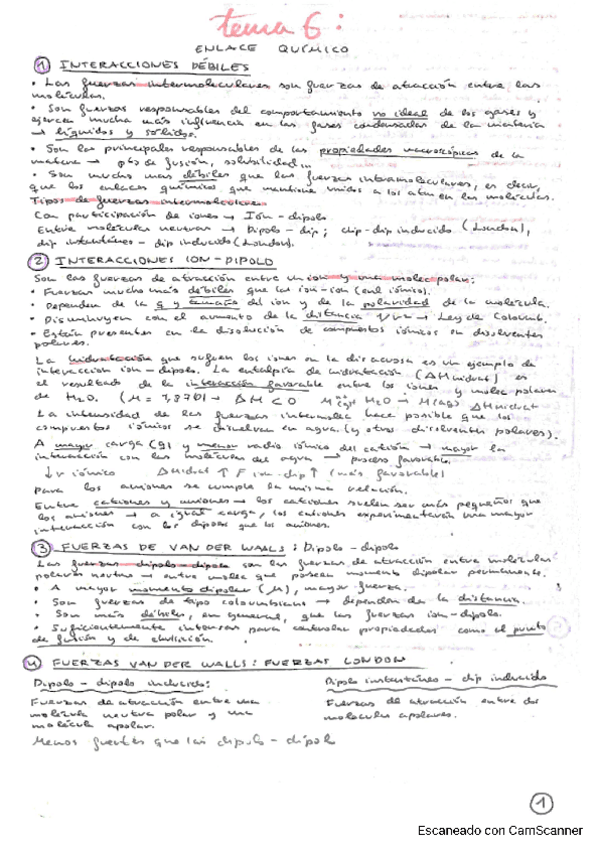 tema 6:
ENLACE QUÍMICO
1 INTERACCIONES DÉBILES
• Las fuerzas intermoleculares son fuerzas de atracción entre las
moléculas.
• Son fuerzas responsables del comportamiento no ideal de los gases y
ejercen mucha más influencia en las fases condensadas de la materia
→ líquidos y sólidos.
• Son las principales responsables de las propiedades macroscópicas de la
materia → ptos de fusión, solubilidad...
• Son mucho más débiles que las fuerzas intramoleculares, es decir,
que los enlaces químicos que mantiene unidos a los atm en las moléculas.
Tipos de fuerzas intermoleculares
Con participación de iones → Ion-dipolo.
Entre moléculas neutras → Dipolo-dip; dip-dip inducido (London),
dip instantáneo - dip inducido (London).
2 INTERACCIONES ION-DIPOLO
Son las fuerzas de atracción entre un ion y una molec polar:
• Fuerzas mucho más débiles que las ion-ion (enl iónico).
• Dependen de la q y tamaño del ion y de la polaridad de la molécula.
• Disminuyen con el aumento de la distancia → Ley de Coulomb.
• Están presentes en la disolución de compuestos iónicos en disolventes
polares.
La hidratación que sufren los iones en la dis acuosa es un ejemplo de
interacción ion-dipolo. La entalpía de hidratación (ΔHhidrat) es
el resultado de la interacción favorable entre los iones y molec polares
de H₂O. (μ = 1,87D) → ΔH < 0 H₂O → M(aq) ΔHhidrat
La intensidad de las fuerzas intermolec hace posible que los
compuestos iónicos se disuelvan en agua (y otros disolventes polares).
A mayor carga (q) y menor radio iónico del catión → mayor la
interacción con las moléculas del agua → proceso favorable.
↓r iónico ΔHhidrat ↑ F ion-dip ↑ (más favorable)
Para los aniones se cumple la misma relación.
Entre cationes y aniones → los cationes suelen ser más pequeños que
los aniones → a igual carga, los cationes experimentarán una mayor
interacción con los dipolos que los aniones.
3 FUERZAS DE VAN DER WALLS: Dipolo-dipolo
Las fuerzas dipolo-dipolo son las fuerzas de atracción entre moléculas
polares neutras → entre molec que posean momento dipolar permanente.
• A mayor momento dipolar (μ), mayor fuerza.
• Son fuerzas de tipo coulombiano → dependen de la distancia.
• Son más débiles, en general, que las fuerzas ion-dipolo.
• Suficientemente intensas para controlar propiedades como el punto
de fusión y de ebullición.
4 FUERZAS VAN DER WALLS: FUERZAS LONDON
Dipolo-dipolo inducido:
Fuerzas de atracción entre una
molécula neutra polar y una
molécula apolar.
Menos fuertes que las dipolo-dipolo
Dipolo instantáneo - dip inducido
Fuerzas de atracción entre dos
moléculas apolares.
1
Escaneado con CamScanner